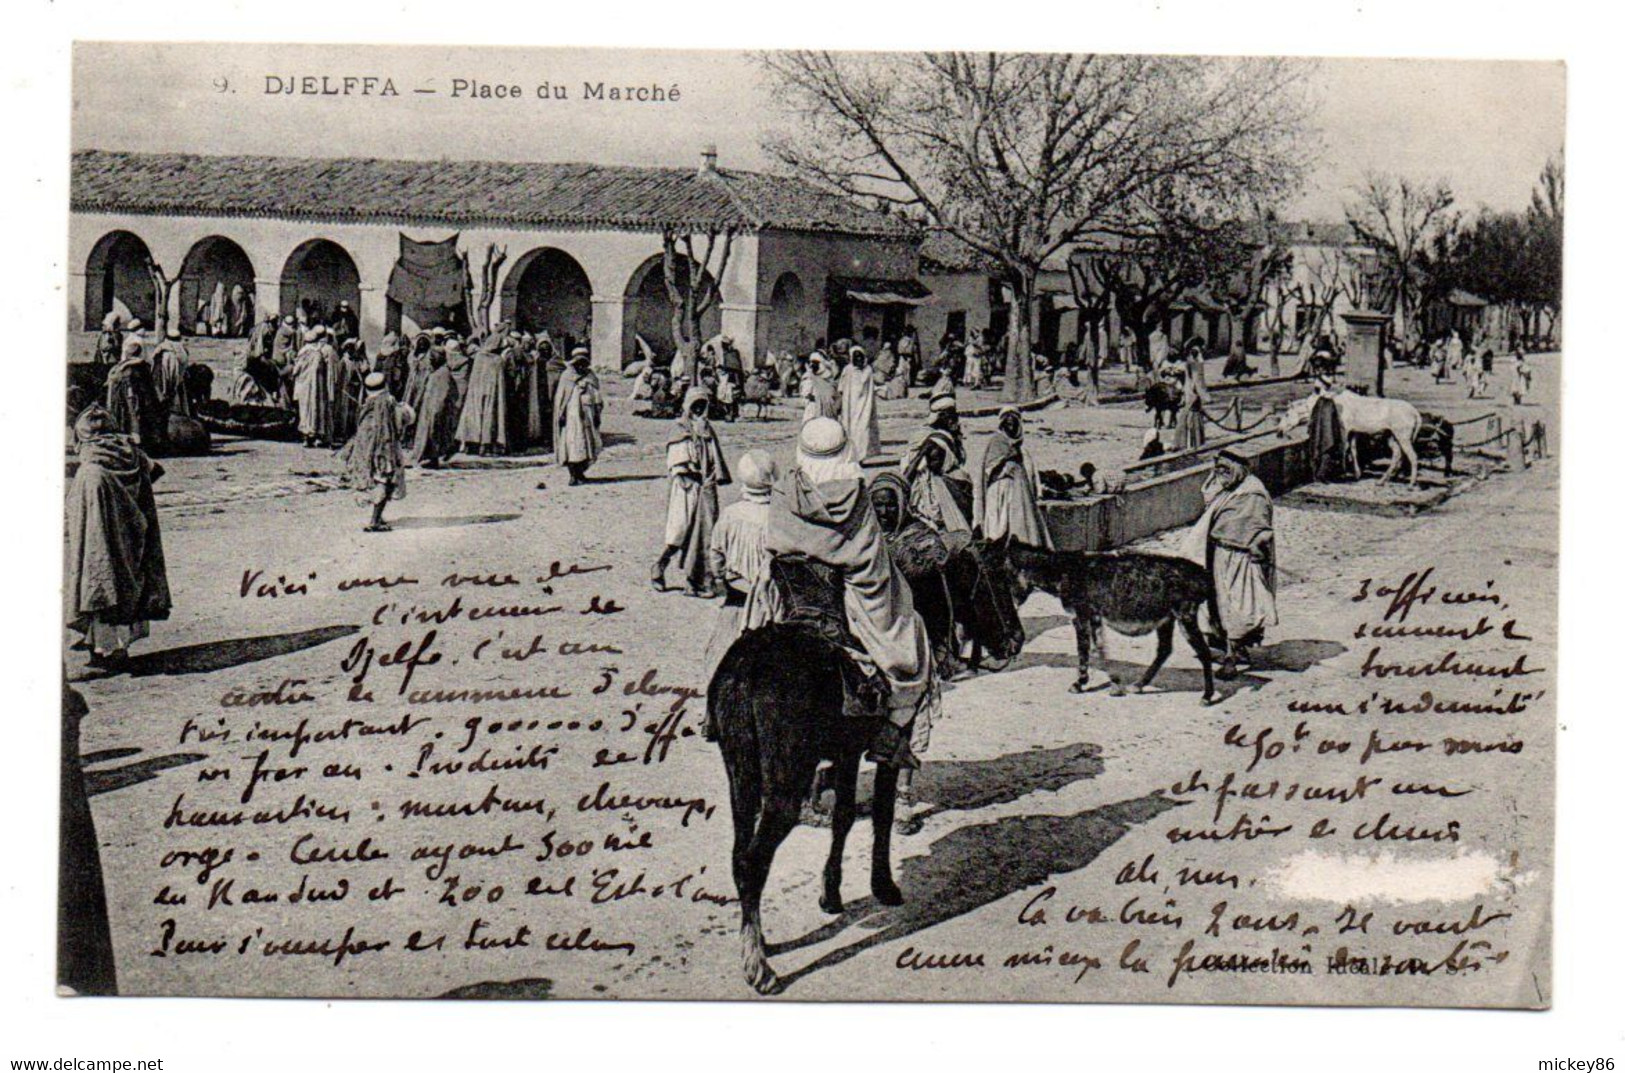 9. DJELFFA — Place du Marché
Voici une vue de
l'intérieur de
Djelfa. C'est un
centre de commerce d'élevage
très important. 9000000 d'affai
res par an. Produits de
transaction : moutons, chevaux,
orge. Cercle ayant 300 kil
du Nord Sud et 200 de l'Est à l'ouest
Pour s'occuper de tout cela
3 officiers,
seulement
touchant
une indemnité
de 50f 00 par mois
et faisant un
métier de chien
Ah, non.
Ça va bien 2 ans. Il vaut
encore mieux la
Collection Idéale P. S.
mickey86